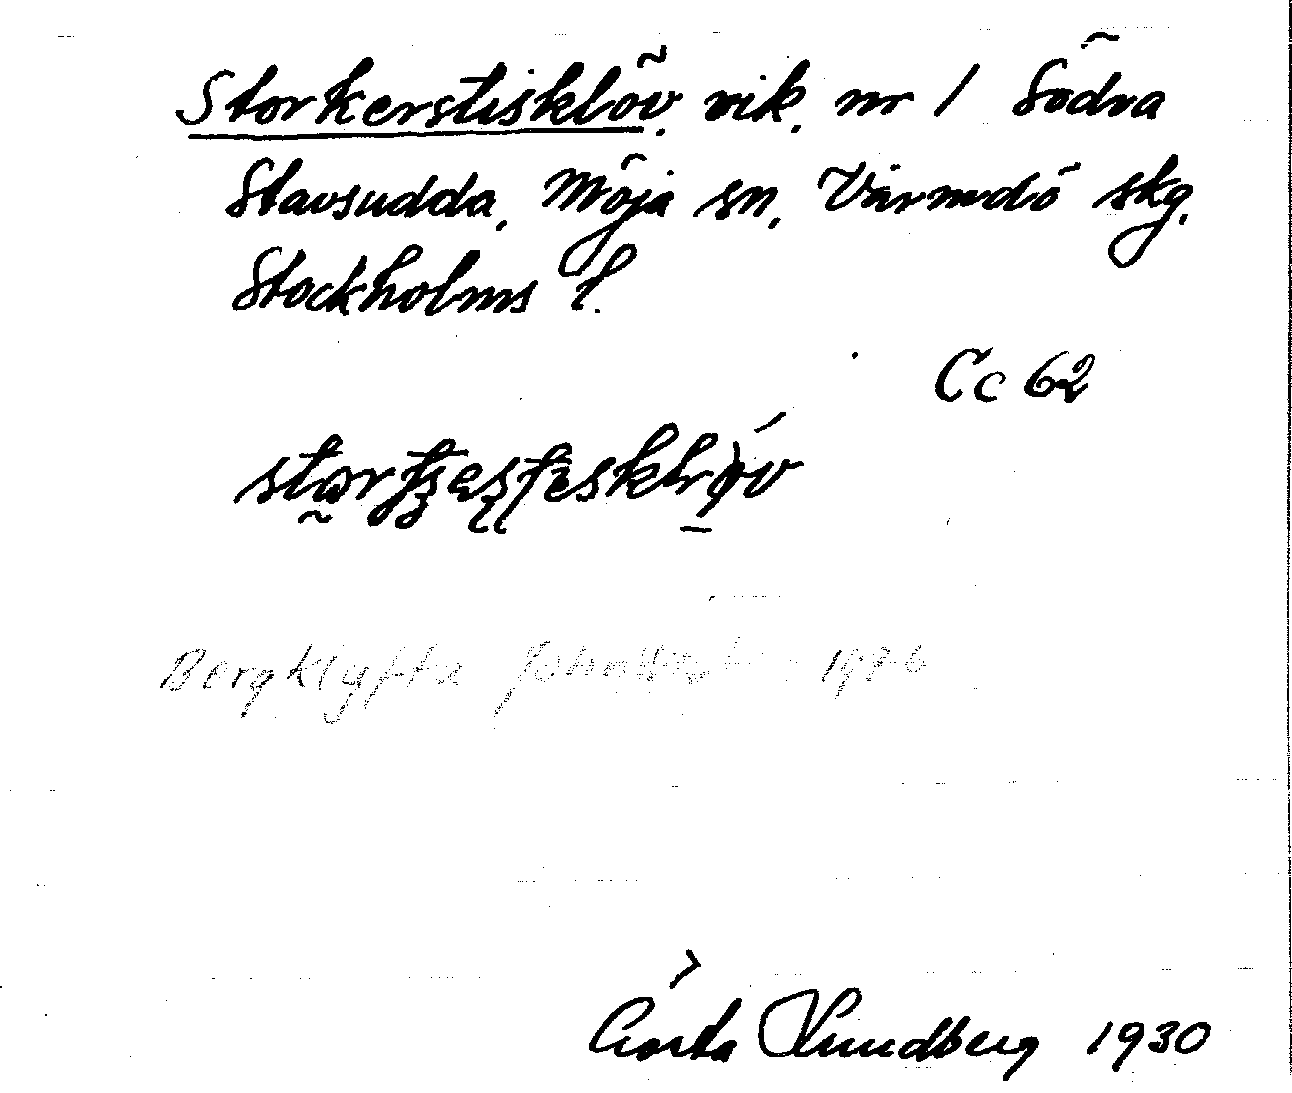 Storkerstisklöv, vik, nr 1 Södra
Stavsudda, Möja sn, Värmdö skg,
Stockholms l.
Cc 62
Bergklyfta 1976
Gösta Lundberg 1930